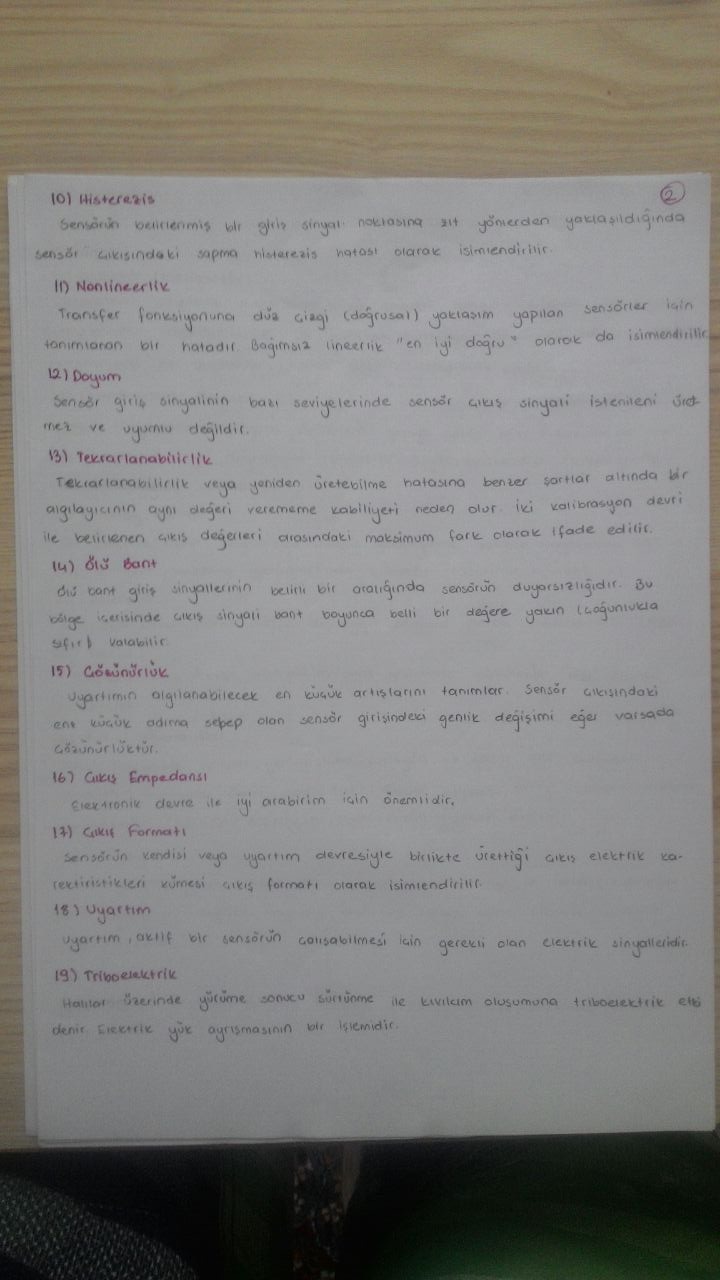 2
10) Histerezis
Sensörün belirlenmiş bir giriş sinyal noktasına zıt yönlerden yaklaşıldığında
sensör çıkışındaki sapma histerezis hatası olarak isimlendirilir.
11) Nonlineerlik
Transfer fonksiyonuna düz çizgi (doğrusal) yaklaşım yapılan sensörler için
tanımlanan bir hatadır. Bağımsız lineerlik "en iyi doğru" olarak da isimlendirilir
12) Doyum
Sensör giriş sinyalinin bazı seviyelerinde sensör çıkış sinyali istenileni üret
mez ve uyumlu değildir.
13) Tekrarlanabilirlik
Tekrarlanabilirlik veya yeniden üretebilme hatasına benzer şartlar altında bir
algılayıcının aynı değeri verememe kabiliyeti neden olur. İki kalibrasyon devri
ile belirlenen çıkış değerleri arasındaki maksimum fark olarak ifade edilir.
14) Ölü Bant
Ölü bant giriş sinyallerinin belirli bir aralığında sensörün duyarsızlığıdır. Bu
bölge içerisinde çıkış sinyali bant boyunca belli bir değere yakın (çoğunlukla
sıfır) kalabilir.
15) Çözünürlük
Uyartımın algılanabilecek en küçük artışlarını tanımlar. Sensör çıkışındaki
ene küçük adıma sebep olan sensör girişindeki genlik değişimi eğer varsada
çözünürlüktür.
16) Çıkış Empedansı
Elektronik devre ile iyi arabirim için önemlidir.
17) Çıkış Formatı
Sensörün kendisi veya uyartım devresiyle birlikte ürettiği çıkış elektrik ka-
rektiristikleri kümesi çıkış formatı olarak isimlendirilir.
18) Uyartım
Uyartım, aktif bir sensörün çalışabilmesi için gerekli olan elektrik sinyalleridir.
19) Triboelektrik
Halılar üzerinde yürüme sonucu sürtünme ile kıvılcım oluşumuna triboelektrik etki
denir. Elektrik yük ayrışmasının bir işlemidir.